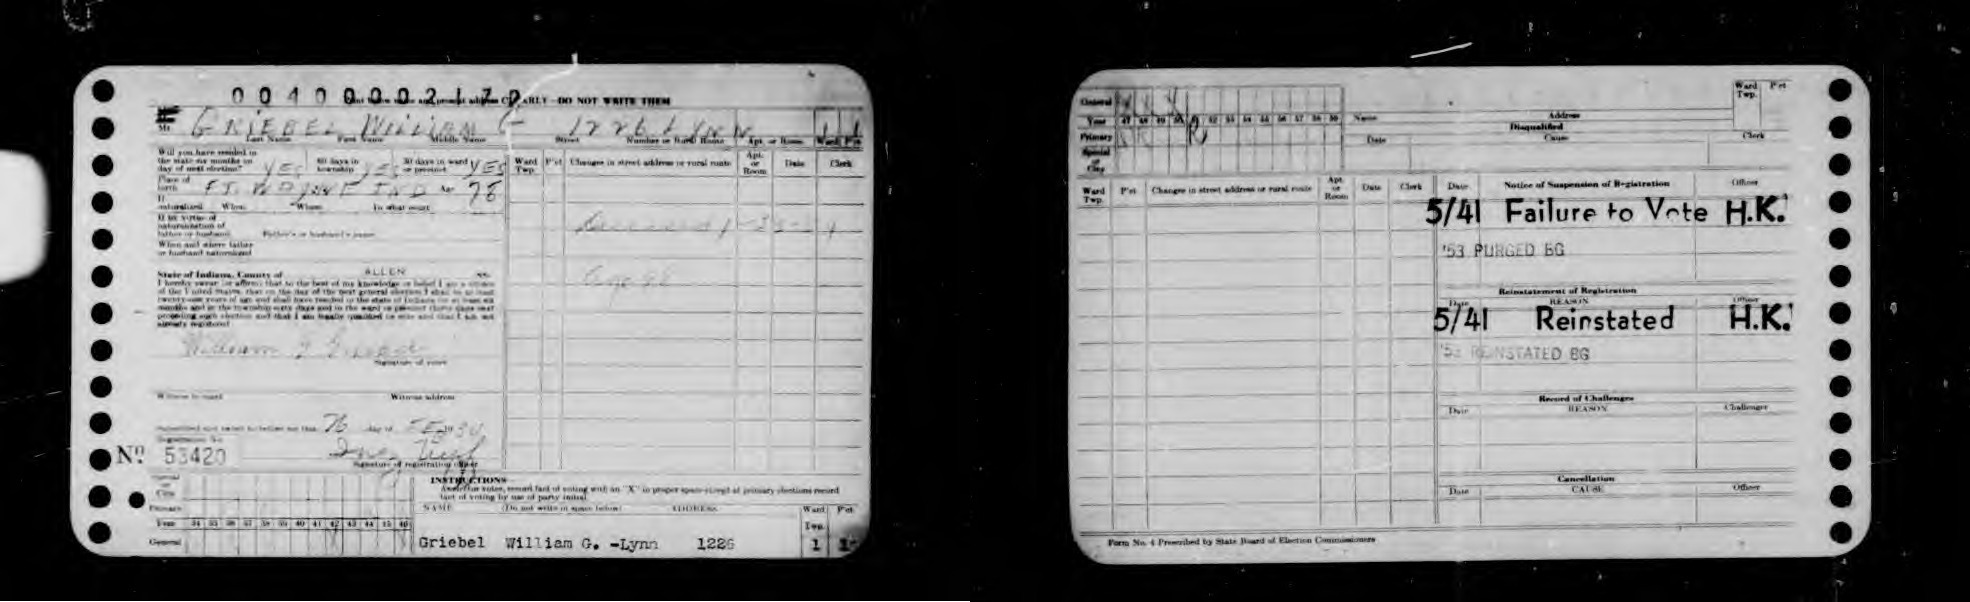 004000021
DO NOT WRITE THEM
GRIEBEL WILLIAM 1226 LYNN
Last Name First Name Middle Name Street Number or Rural Route Apt. or Room Ward P'ct
Will you have resided in the state six months on day of next election? YES 60 days in township YES 30 days in ward or precinct YES
Ward Twp. P'ct Changes in street address or rural route Apt. or Room Date Clerk
Place of birth FT. WAYNE IND Age 78
If naturalized When Where In what court
If by virtue of naturalization of father or husband Father's or husband's name
When and where father or husband naturalized
Age 88
State of Indiana, County of ALLEN ss.
I hereby swear (or affirm) that to the best of my knowledge or belief I am a citizen
of the United States, that on the day of the next general election I shall be at least
twenty-one years of age and shall have resided in the state of Indiana for at least six
months and in the township sixty days and in the ward or precinct thirty days next
preceding such election and that I am legally qualified to vote and that I am not
already registered
William
Signature of voter
Witness to mark Witness address
Subscribed and sworn to before me this 26 day of
Registration No.
No. 53420
Signature of registration officer
Special or City
Primary
Year 34 35 36 37 38 39 40 41 42 43 44 45 46
General
INSTRUCTIONS
After voter votes, record fact of voting with an "X" in proper space except at primary elections record
fact of voting by use of party initial.
NAME (Do not write in space below) ADDRESS Ward Twp. P'ct
Griebel William G. -Lynn 1226 1
General
Year 47 48 49 50 52 53 54 55 56 57 58 59
Primary
Special or City
Name Address Ward Twp. P'ct
Disqualified
Date Cause Clerk
Ward Twp. P'ct Changes in street address or rural route Apt. or Room Date Clerk
Date Notice of Suspension of Registration Officer
5/41 Failure to Vote H.K.
'53 PURGED BG
Reinstatement of Registration
Date REASON Officer
5/41 Reinstated H.K.
REINSTATED BG
Record of Challenges
Date REASON Challenger
Cancellation
Date CAUSE Officer
Form No. 4 Prescribed by State Board of Election Commissioners